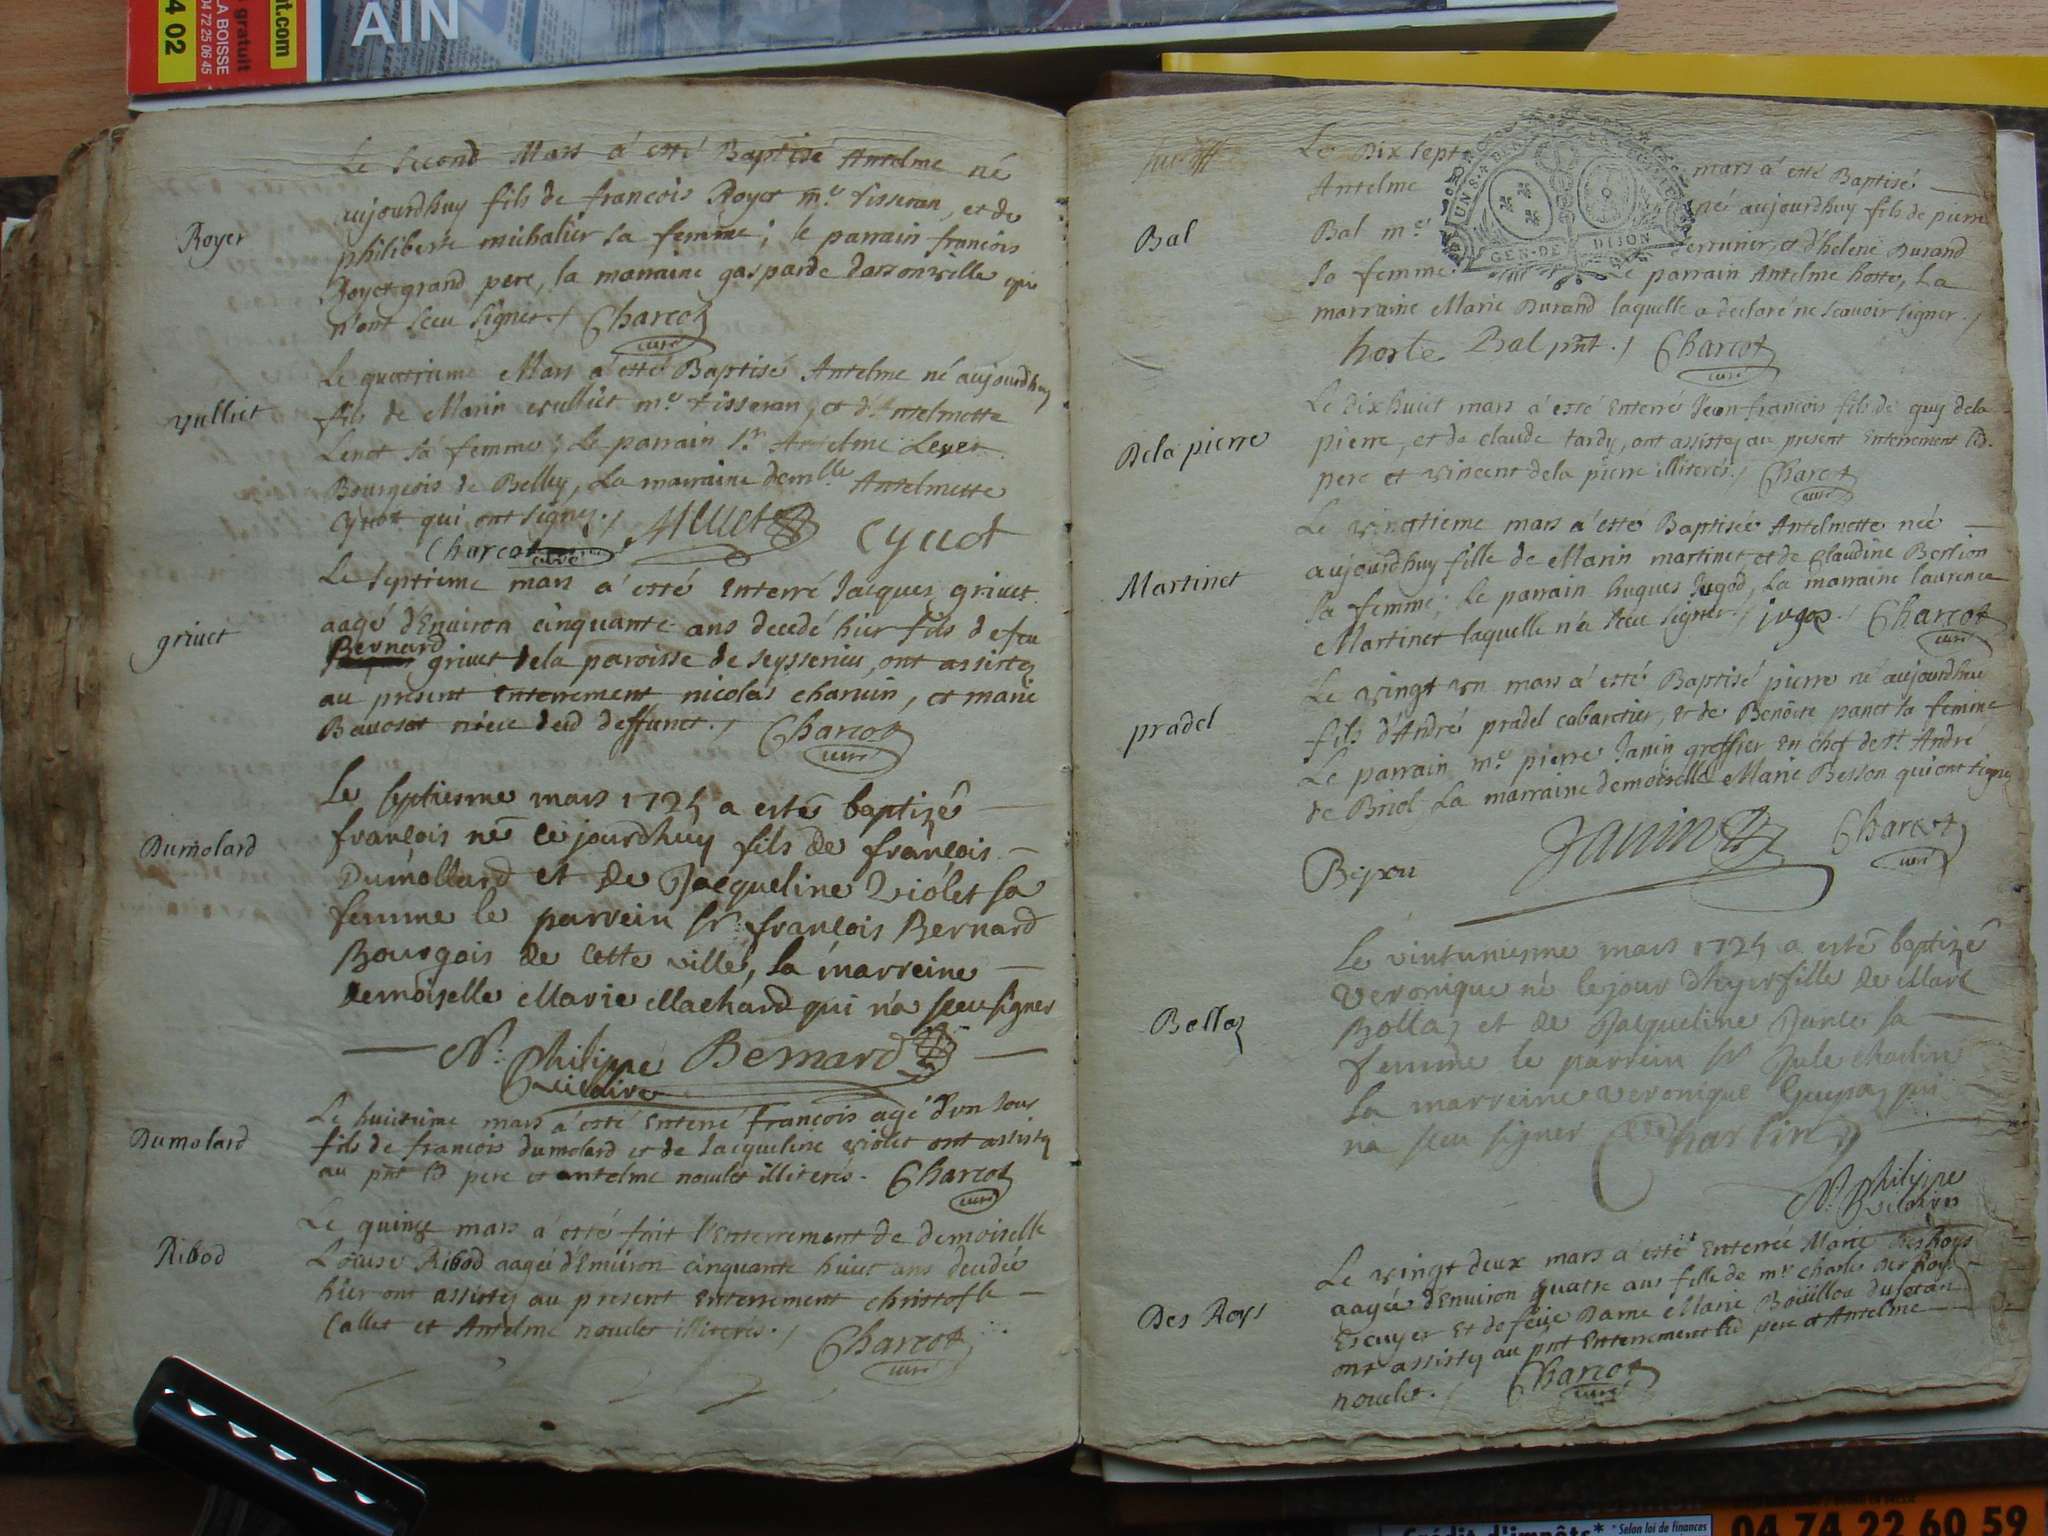 AIN
t.com
gratuit
LA BOISSE
04 72 25 06 45
4 02
Le second Mars a esté Baptisé Antelme né
aujourdhuy fils de francois Royer me. tisseran, et de
philiberte michalier sa femme; le parrain francois
Royer grand pere, la marraine gasparde darsonville qui
n'ont sceu signer./ Charcot
curé
Royer
Le quatrieme Mars a esté Baptisé Antelme né aujourdhuy
fils de Marin vulliet me. tisseran, et d'Antelmette
sa femme; Le parrain Sr. Antelme
Bourgeois de Belley, La marraine demlle Antelmette
Cyuot qui ont signez./ Cyuot
Charcot curé
vulliet
Le septieme mars a esté Enterré Jacques griuet
aagé d'Enuiron cinquante ans decedé hier fils de feu
Bernard
griuet dela paroisse de seyssenieu, ont assistez
au present Enterrement nicolas charuin, et marie
niece dud deffunct./ Charcot
curé
griuet
Le septiesme mars 1725 a esté baptizé —
francois né cejourdhuy fils de francois —
Dumollard et de Jacqueline Violet sa
femme le parrein Sr. francois Bernard
Bourgois de cette ville, la marreine —
demoiselle Marie Machard qui n'a sceu signer
— N. Philippe Bernard —
vicaire
Dumolard
Le huitieme mars a esté Enterré francois agé d'vn Jour
fils de francois dumolard et de Jacqueline violet ont assistez
au pnt ld pere et antelme nouulet illiterés. Charcot
curé
Dumolard
Le quinze mars a esté fait l'Enterrement de demoiselle
Louise Ribod aagée d'Enuiron cinquante huict ans decedée
hier ont assistez au present Enterrement christofle —
Callet et Antelme nouulet illiterés./ Charcot
curé
Ribod
Le Dix sept mars a esté Baptisé —
Antelme né aujourdhuy fils de pierre
Bal me. serrurier, et d'helene Durand
sa femme. Le parrain Antelme horte, La
marraine Marie Durand laquelle a declaré ne scauoir signer./
horte Bal pnt./ Charcot
curé
Bal
GEN·DE DIJON
Le dixhuict mars a esté Enterré Jean francois fils de guy dela
pierre, et de claude tardy, ont assistez au present Enterrement led.
pere et vincent dela pierre illiterés./ Charcot
curé
Dela pierre
Le vingtieme mars a esté Baptisée Antelmette née —
aujourdhuy fille de Marin martinet, et de Claudine Berlion
sa femme; Le parrain hugues Jugod, La marraine laurence
Martinet laquelle n'a sceu signer./ jugod./ Charcot
curé
Martinet
Le vingt vn mars a esté Baptisé pierre né aujourdhuy
fils d'André pradel cabaretier, et de Benoite panet sa femme
Le parrain me. pierre Janin greffier En chef de St. André
de Briol, La marraine demoiselle Marie Besson qui ont signez
Janin Charcot
curé
pradel
Le vintuniesme mars 1725 a esté baptizé
Veronique né lejour dhyer fille de Marc
Bollaz et de Jacqueline Junet sa —
femme le parrein Sr. Jule charlin
La marreine veronique qui
na sceu signer Charlin
N. Philippe
vicaire
Bollaz
Le vingt deux mars a esté Enterrée Marie des Roys
aagée d'Enuiron quatre ans fille de mr charles des Roys
Escuyer Et de feüe Dame Marie Boüillou dusetan
ont assistez au pnt Enterrement led pere et Antelme —
nouulet./ Charcot
curé
Des Roys
Crédit d'impôts* *Selon loi de finances
04 74 22 60 59